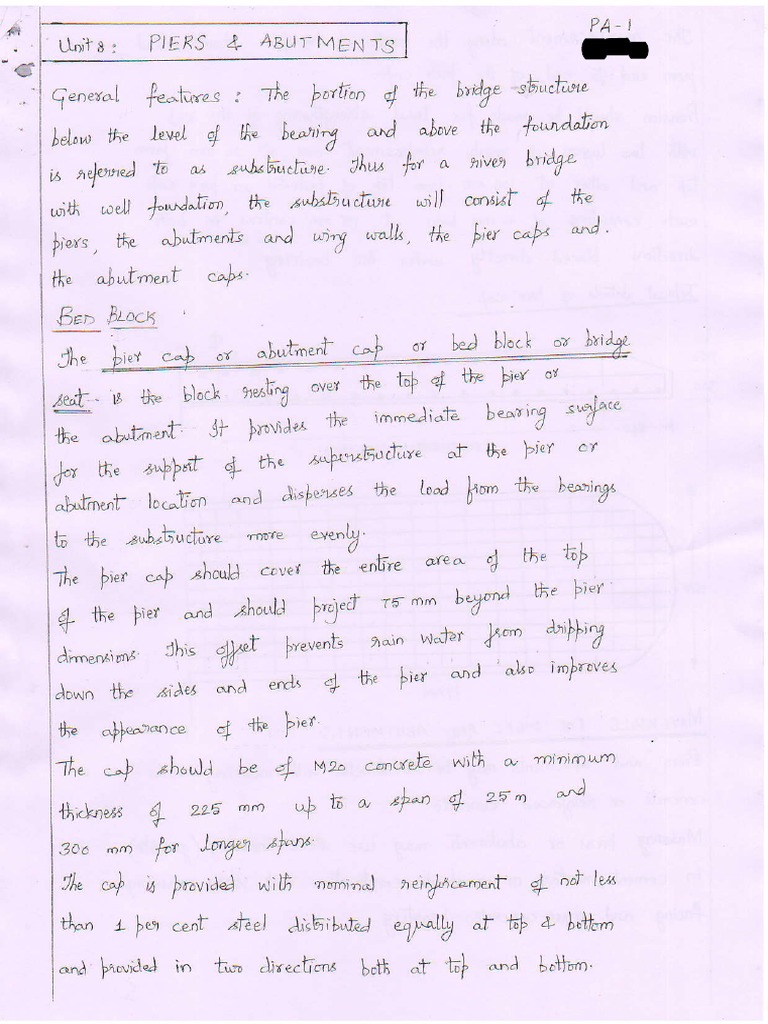 PA-1
Unit 8: PIERS & ABUTMENTS
General features: The portion of the bridge structure
below the level of the bearing and above the foundation
is referred to as substructure. Thus for a river bridge
with well foundation, the substructure will consist of the
piers, the abutments and wing walls, the pier caps and.
the abutment caps.
BED BLOCK
The pier cap or abutment cap or bed block or bridge
seat is the block resting over the top of the pier or
the abutment. It provides the immediate bearing surface
for the support of the superstructure at the pier or
abutment location and disperses the load from the bearings
to the substructure more evenly.
The pier cap should cover the entire area of the top
of the pier and should project 75 mm beyond the pier
dimensions. This offset prevents rain water from dripping
down the sides and ends of the pier and also improves
the appearance of the pier.
The cap should be of M20 concrete with a minimum
thickness of 225 mm up to a span of 25m and
300 mm for longer spans.
The cap is provided with nominal reinforcement of not less
than 1 per cent steel distributed equally at top & bottom
and provided in two directions both at top and bottom.